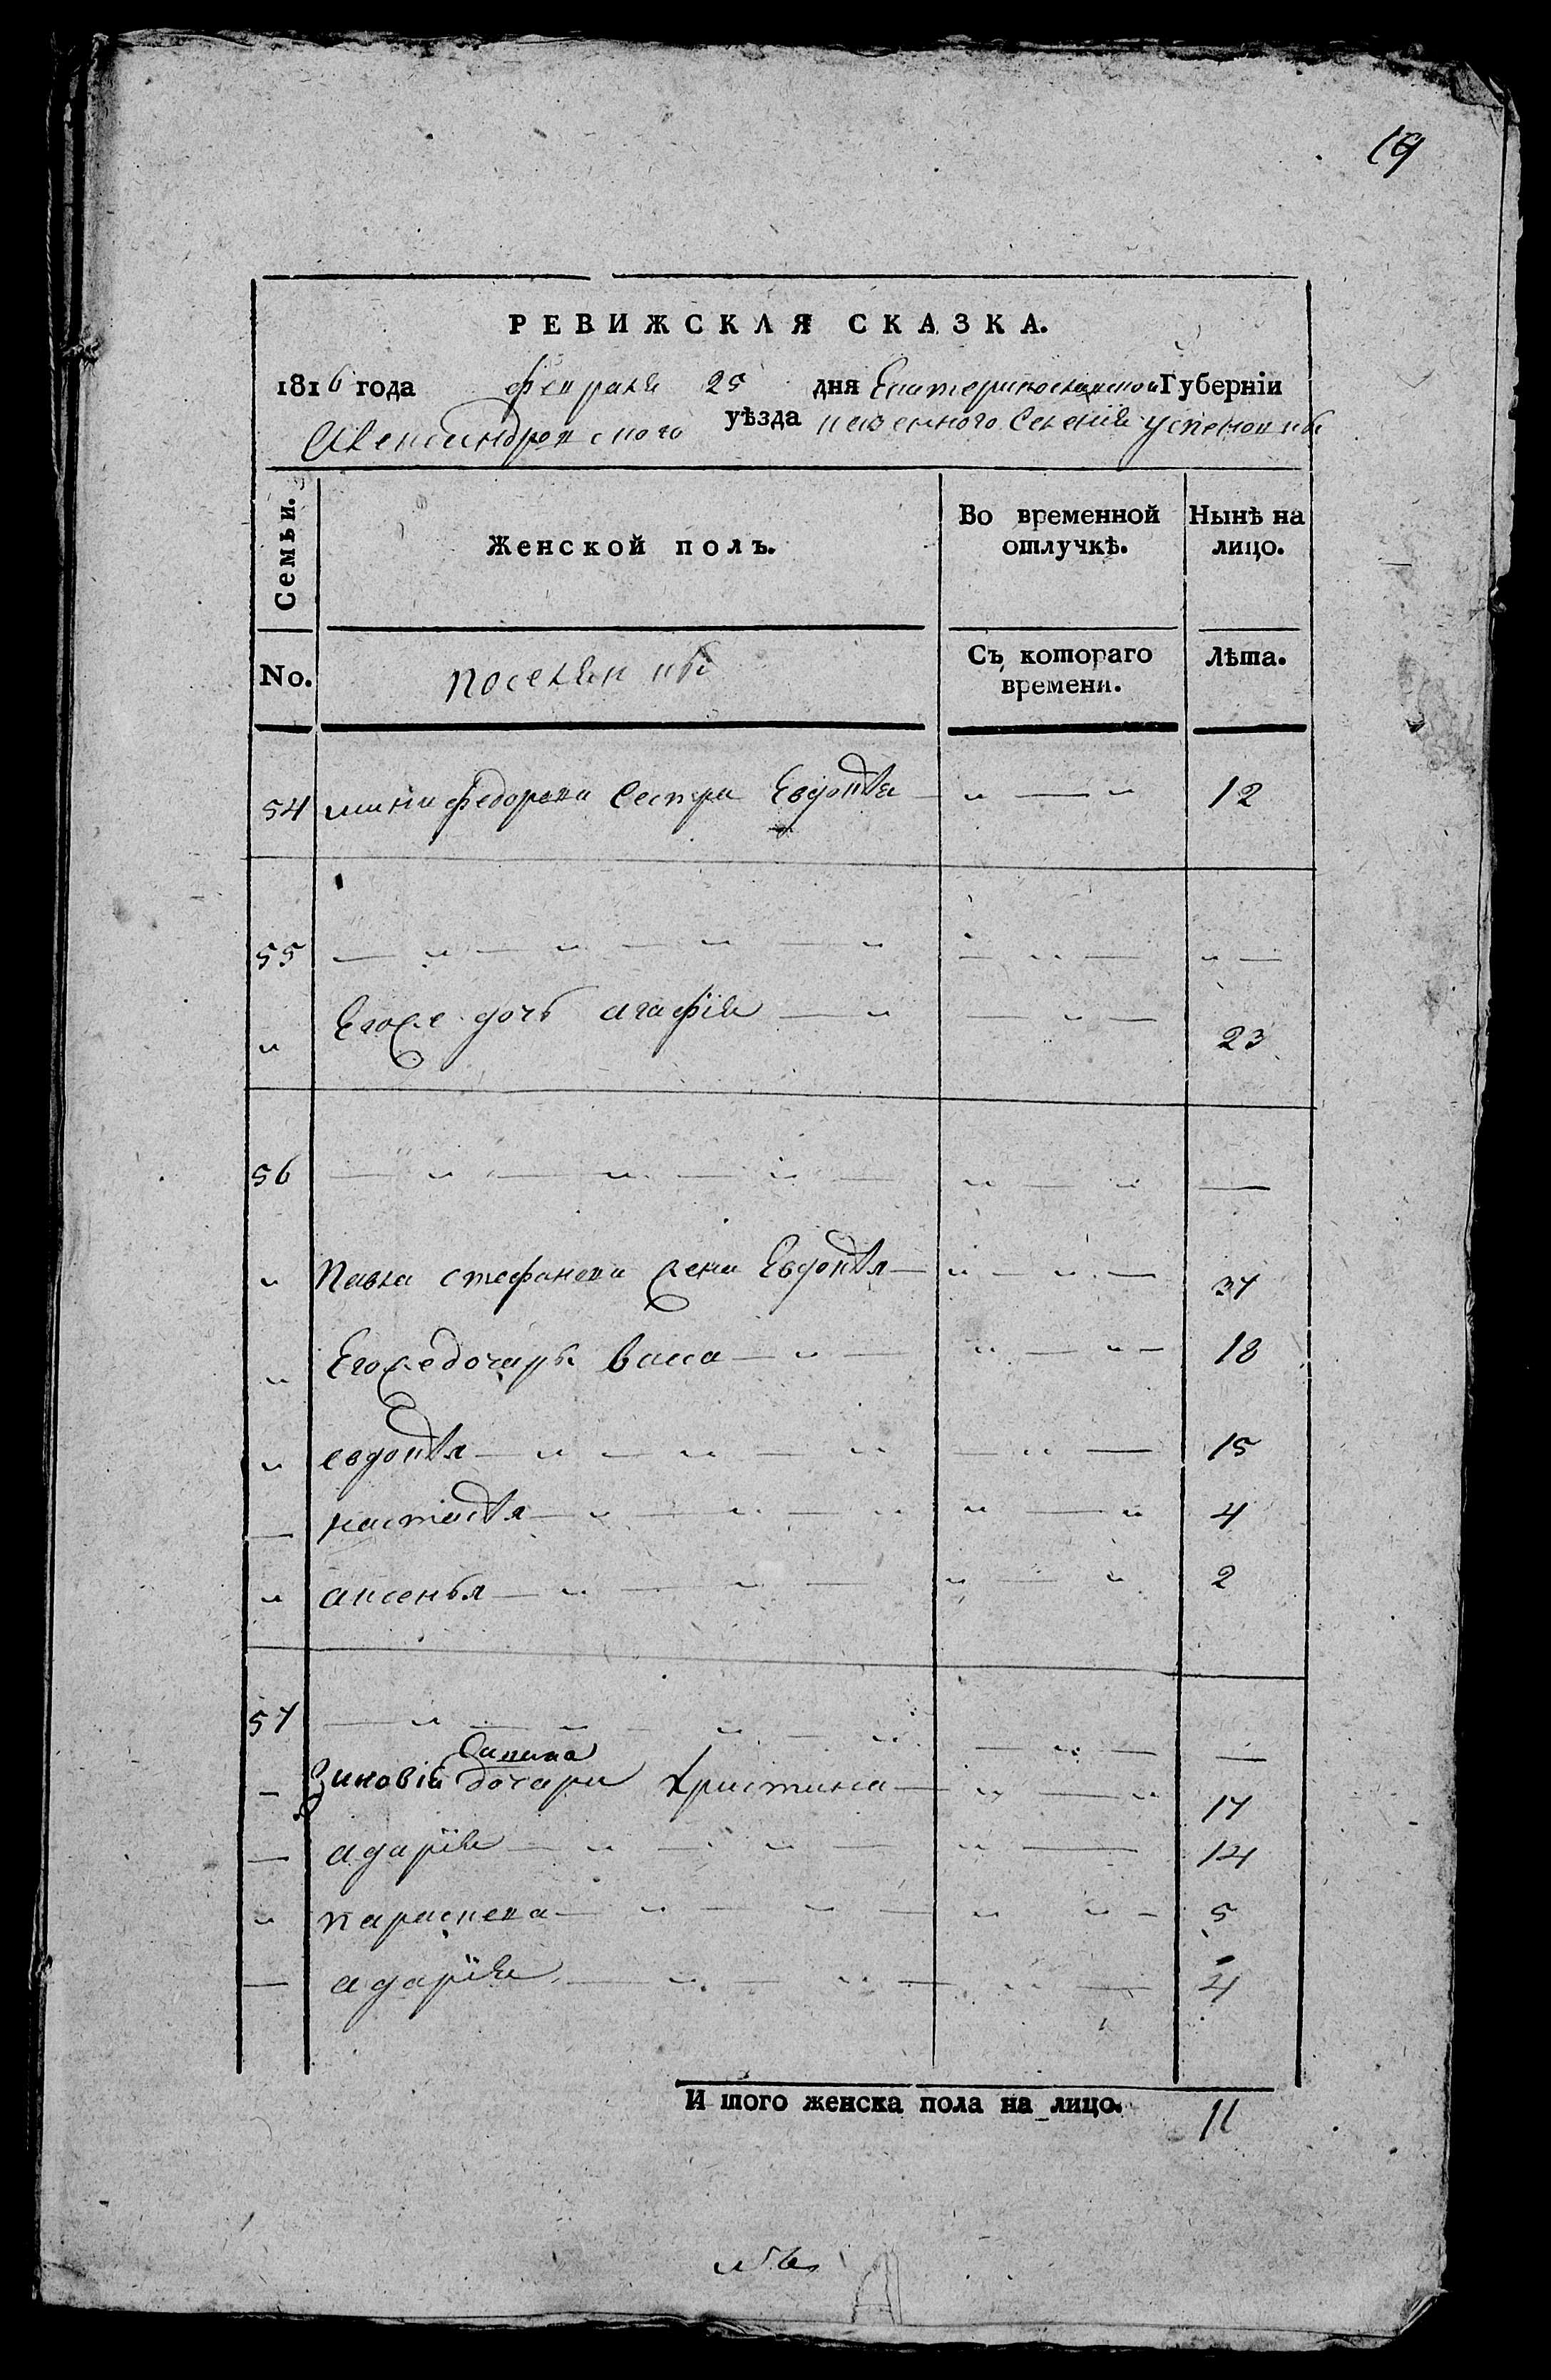 19
РЕВИЖСКАЯ СКАЗКА.
1816 года февраля 25 дня Екатеринославской Губерніи
Александровского уѣзда казенного Селенія успеновки
Семьи.
Женской полъ.
Во временной отлучкѣ.
Нынѣ на лицо.
No.
поселянки
Съ котораго времени.
Лѣта.
54 федорева Сестра Евдокія 12
55
Егоже дочь агафія 23
56
Павла стефанева жена Евдокія 37
Егоже дочерь васса 18
евдокія 15
настасія 4
аксенья 2
57
Зиновія дочери христина 17
адарія 14
параскева 5
адарія 4
И шого женска пола на лицо. 11